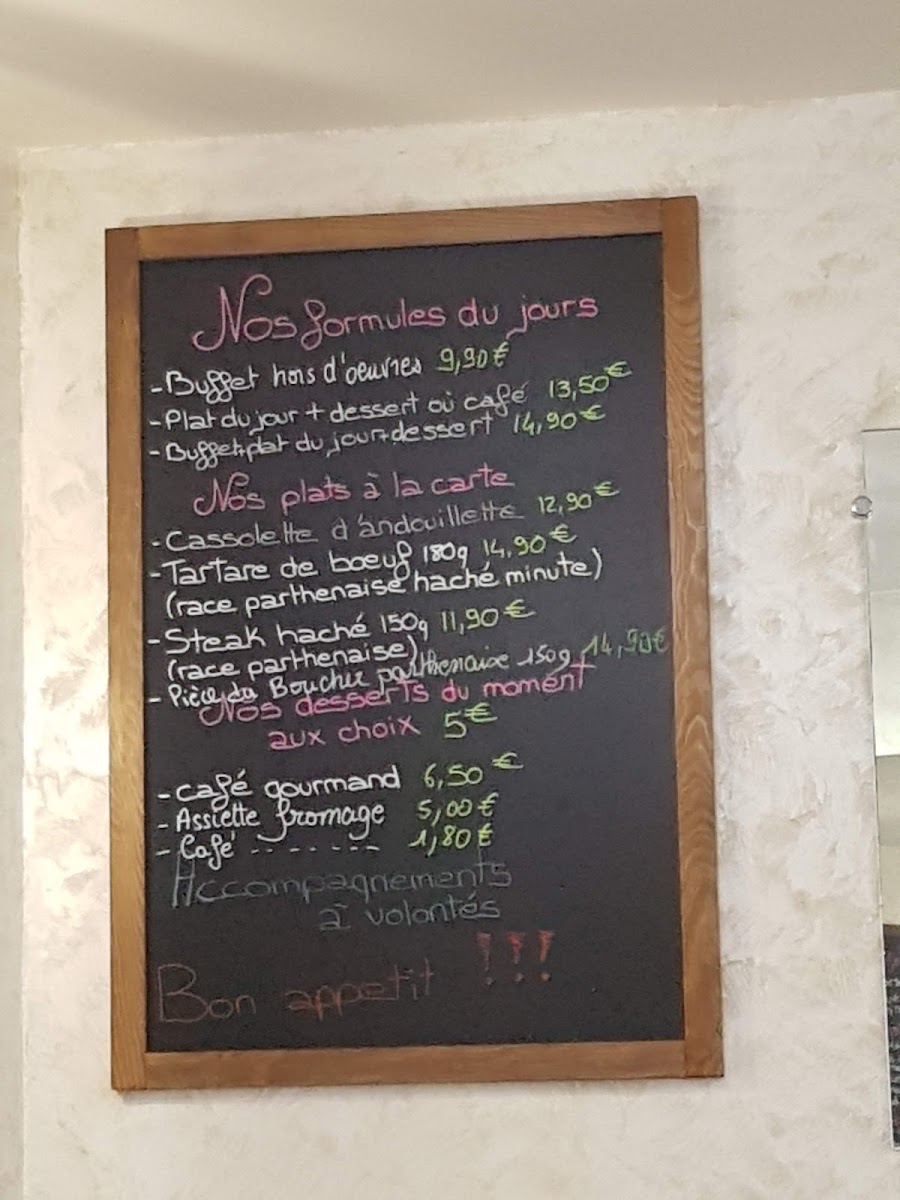 Nos formules du jours
- Buffet hors d'oeuvres 9,90€
- Plat du jour + dessert où café 13,50€
- Buffet+plat du jour+dessert 14,90€
Nos plats à la carte
- Cassolette d'andouillette 12,90€
- Tartare de boeuf 180g 14,90€
(race parthenaise haché minute)
- Steak haché 150g 11,90€
(race parthenaise)
- Pièce du Boucher parthenaise 150g 14,90€
Nos desserts du moment
aux choix 5€
- café gourmand 6,50€
- Assiette fromage 5,00€
- Café - - - - - - - 1,80€
Accompagnements
à volontés
Bon appetit !!!